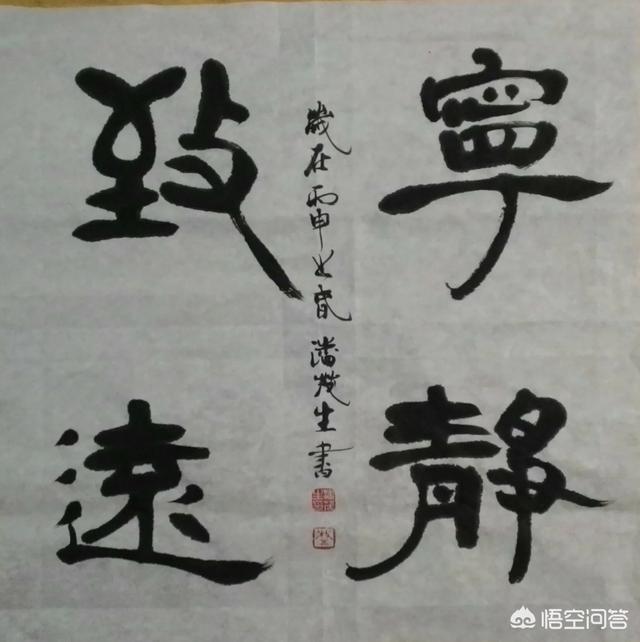 寧靜
致遠
歲在丙申之春潘茂生書
悟空问答